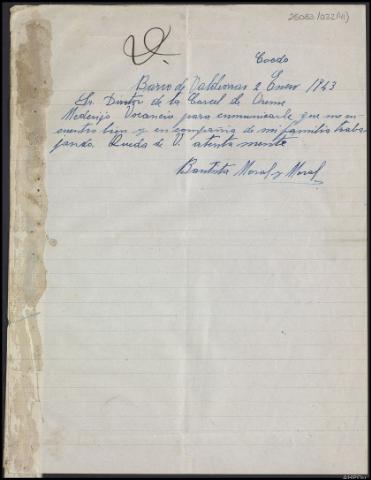 25053/022(41)
Coedo
Barco de Valdeorras 2 Enero 1943
Sr. Director de la Carcel de Orense
Me dirijo Vocancia para comunicarle que me en
cuentro bien y en compañia de mi familia traba
jando. Queda de V. atentamente
Bautista Moral y Moral